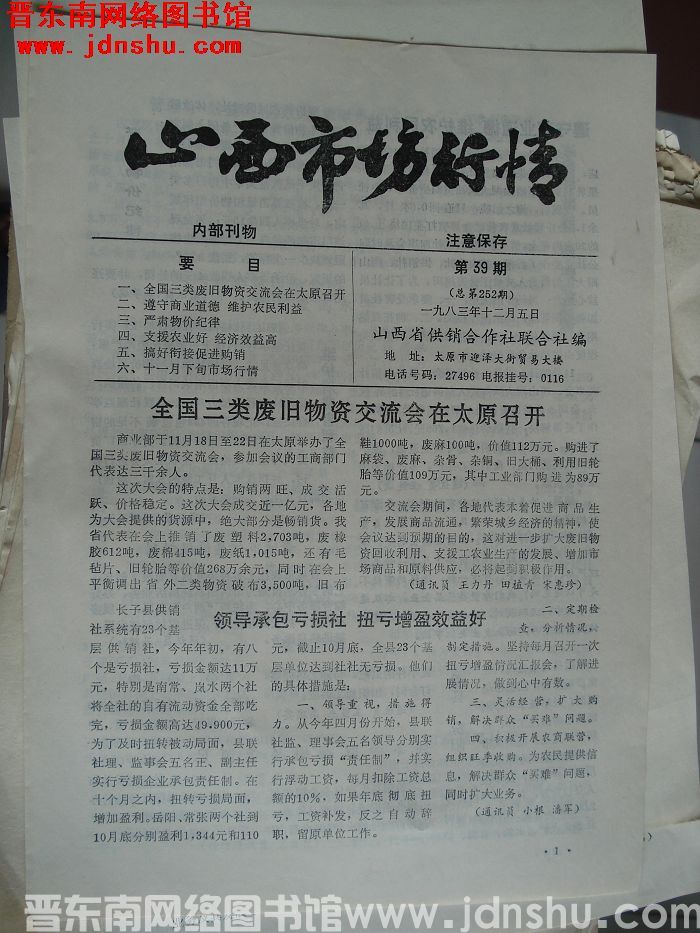 晋东南网络图书馆
www.jdnshu.com
山西市场行情
内部刊物
注意保存
要 目
一、全国三类废旧物资交流会在太原召开
二、遵守商业道德 维护农民利益
三、严肃物价纪律
四、支援农业好 经济效益高
五、搞好衔接促进购销
六、十一月下旬市场行情
第39期
(总第252期)
一九八三年十二月五日
山西省供销合作社联合社编
地 址：太原市迎泽大街贸易大楼
电话号码：27496 电报挂号：0116
全国三类废旧物资交流会在太原召开
商业部于11月18日至22日在太原举办了全
国三类废旧物资交流会，参加会议的工商部门
代表达三千余人。
这次大会的特点是：购销两旺、成交活
跃、价格稳定。这次大会成交近一亿元，各地
为大会提供的货源中，绝大部分是畅销货。我
省代表在会上推销了废塑料2,703吨，废橡
胶612吨，废棉415吨，废纸1,015吨，还有毛
毡片、旧轮胎等价值268万余元，同时在会上
平衡调出省外二类物资破布3,500吨，旧布
鞋1000吨，废麻100吨，价值112万元。购进了
麻袋、废麻、杂骨、杂铜、旧大桶、利用旧轮
胎等价值109万元，其中工业部门购进为89万
元。
交流会期间，各地代表本着促进商品生
产，发展商品流通，繁荣城乡经济的精神，使
会议达到预期的目的，这对进一步扩大废旧物
资回收利用、支援工农业生产的发展、增加市
场商品和原料供应，必将起到积极作用。
(通讯员 王力丹 田植青 宋惠珍)
领导承包亏损社 扭亏增盈效益好
长子县供销
社系统有23个基
层供销社，今年年初，有八
个是亏损社，亏损金额达11万
元，特别是南常、岚水两个社
将全社的自有流动资金全部吃
完，亏损金额高达49,900元，
为了及时扭转被动局面，县联
社理、监事会五名正、副主任
实行亏损企业承包责任制。在
十个月之内，扭转亏损局面，
增加盈利。岳阳、常张两个社到
10月底分别盈利1,344元和110
元，截止10月底，全县23个基
层单位达到社社无亏损。他们
的具体措施是：
一、领导重视，措施得
力。从今年四月份开始，县联
社监、理事会五名领导分别实
行承包亏损“责任制”，并实
行浮动工资，每月扣除工资总
额的10%，如果年底彻底扭
亏，工资补发，反之自动辞
职，留原单位工作。
二、定期检
查，分析情况，
制定措施。坚持每月召开一次
扭亏增盈情况汇报会，了解进
展情况，做到心中有数。
三、灵活经营，扩大购
销，解决群众“买难”问题。
四、积极开展农商联营，
组织旺季收购。为农民提供信
息，解决群众“买难”问题，
同时扩大业务。
(通讯员 小根 潘军)
·1·
晋东南网络图书馆 www.jdnshu.com